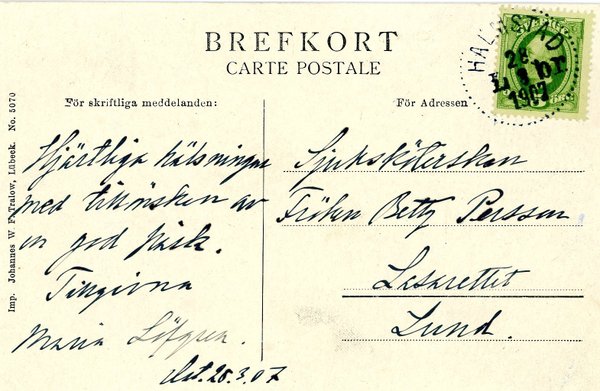 BREFKORT
CARTE POSTALE
För skriftliga meddelanden:
För Adressen
Hjärtliga hälsningar
med tillönskan av
en god påsk.
Tillgivna
Maria Löfgren.
28.3.07
Sjuksköterskan
Fröken Betty Persson
Lasarettet
Lund.
HALMSTAD
28
3
1907
Imp. Johannes W. F. Tralow, Lübeck. No. 5070